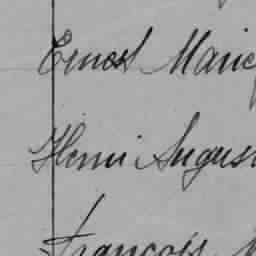 Ernest Marie
Henri August
François